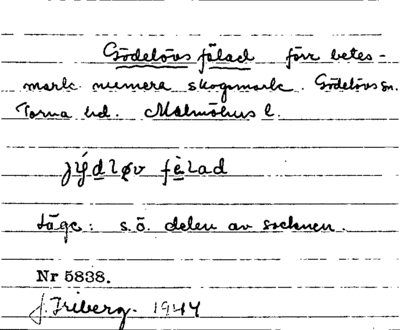 Gödelövs fälad förr betes-
mark numera skogsmark. Gödelövs sn.
Torna hd. Malmöhus l.
jý̄dløv fèlad
Läge: s.ö. delen av socknen.
Nr 5838.
J. Friberg. 1944